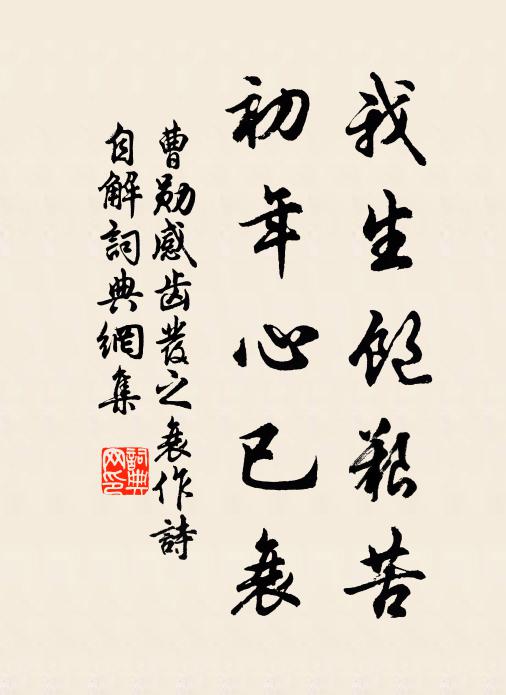 我生飽艱苦
初年心已衰
曹勛感齿發之衰作詩
自解詞典網集
詞典网印